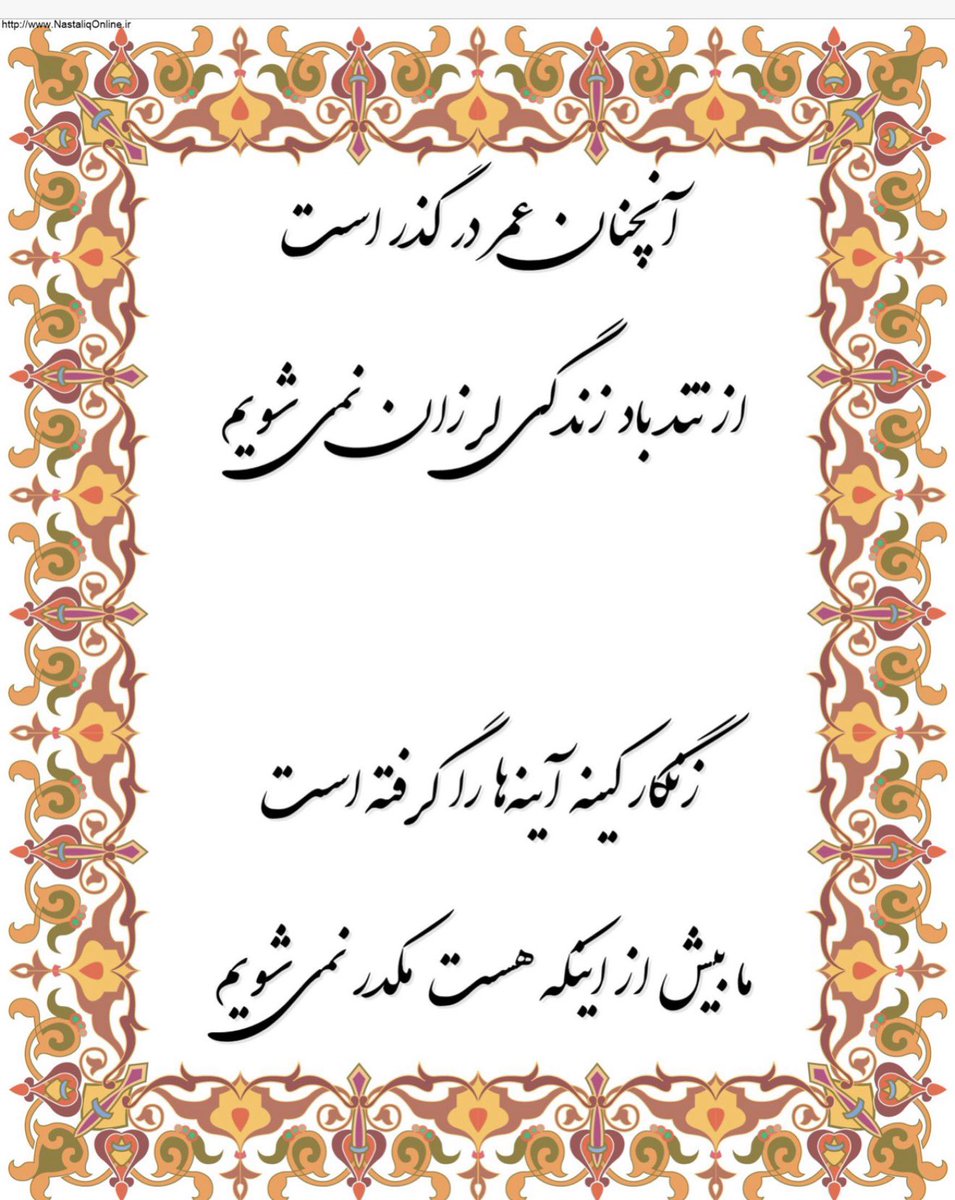 http://www.NastaliqOnline.ir
آنچنان عمر در گذر است
از تند باد زندگی لرزان نمی‌شویم
زنگار کینه آینه‌ها را گرفته است
ما بیش از اینکه هست مکدر نمی‌شویم